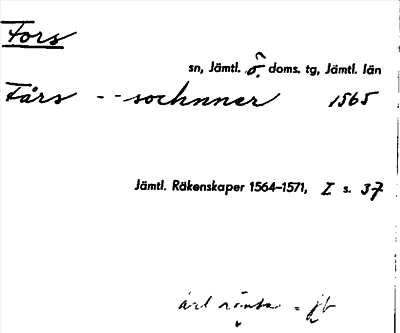 Fors
sn, Jämtl. ö. doms. tg, Jämtl. län
Fårs - - sochnner 1565
Jämtl. Räkenskaper 1564–1571, I s. 37
årl ränta